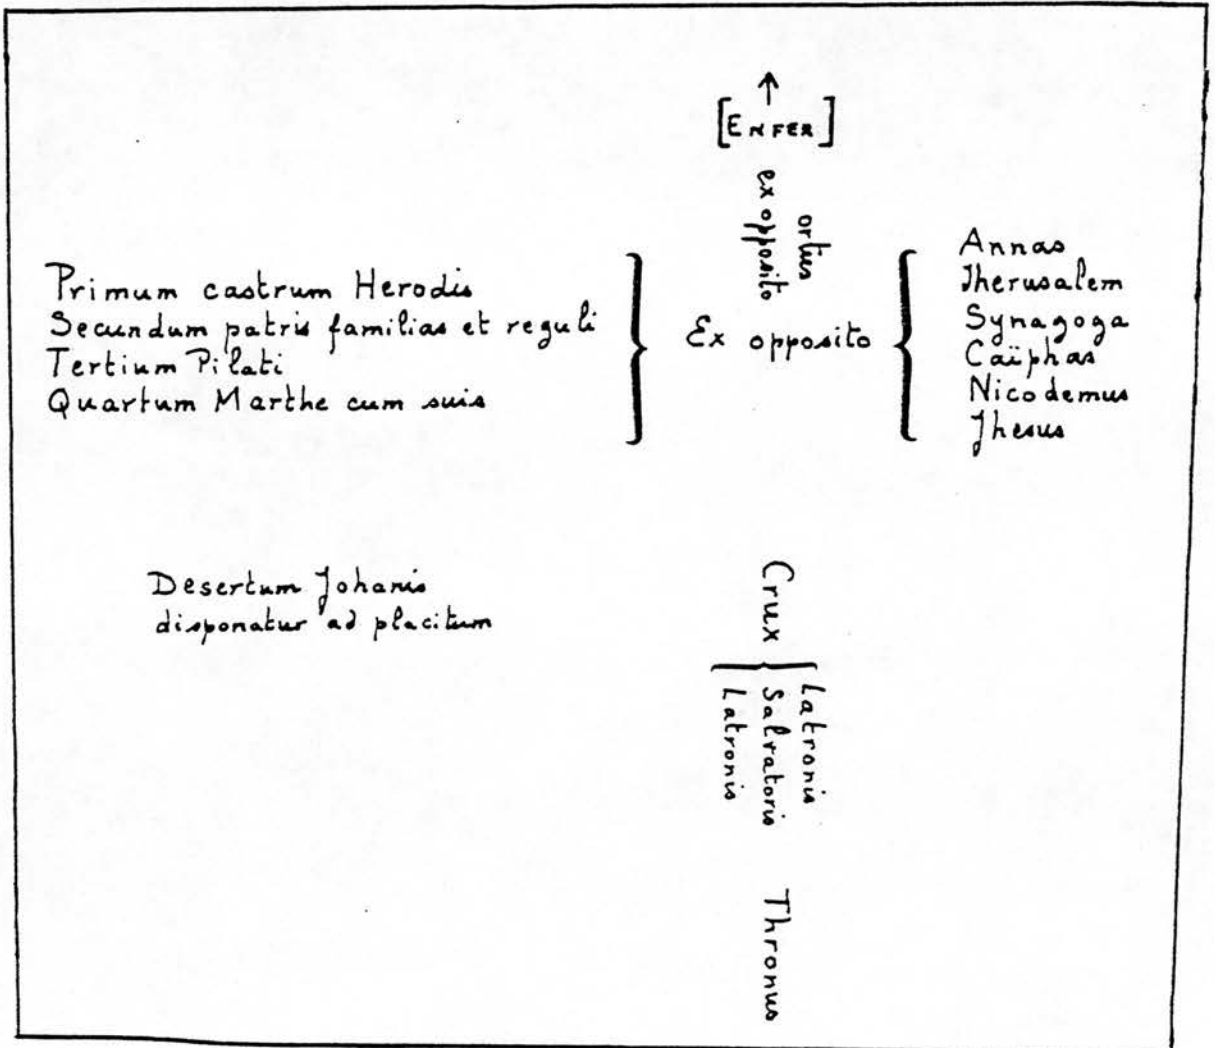 [ENFER]
ortus
ex opposito
Primum castrum Herodis
Secundum patris familias et reguli
Tertium Pilati
Quartum Marthe cum suis
Ex opposito
Annas
Jherusalem
Synagoga
Caïphas
Nicodemus
Jhesus
Desertum Johanis
disponatur ad placitum
Crux
Latronis
Salvatoris
Latronis
Thronus